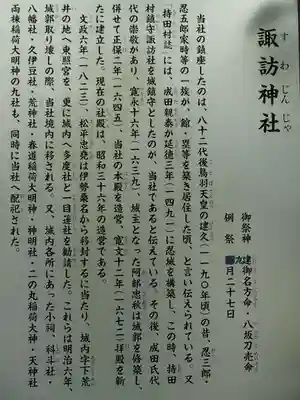 諏訪神社
すわじんじゃ
御祭神 建御名方命・八坂刀売命
例祭 九月二十七日
当社の鎮座したのは、八十二代後鳥羽天皇の建久(一一九〇年頃)の昔、忍三郎・
忍五郎家時等の一族が、館・塁等を築き居住した頃、と言い伝えられている。又、
「持田村誌」には、成田親泰が延徳三年(一四九一)に忍城を構築し、この時、持田
村鎮守諏訪社を城鎮守としたのが、当社であると伝えている。その後、成田氏代
代の崇敬があり、寛永十六年(一六三九)、城主となった阿部忠秋は城郭を修築し、
併せて正保二年(一六四五)、当社の本殿を造営、寛文十二年(一六七二)拝殿を新
たに建立した。現在の社殿は、昭和三十六年の造営である。
文政六年(一八二三)、松平忠堯は伊勢桑名から移封するに当たり、城内字下荒
井の地へ東照宮を、更に城内へ多度社と一目連社を勧請した。これらは明治六年、
城郭取り壊しの際、当社境内に移される。又、城内各所にあった小祠、科斗社・
八幡社・久伊豆社・荒神社・春道稲荷大明神・神明社・二の丸稲荷大神・天神社
両棟稲荷大明神の九社も、同時に当社へ配祀された。